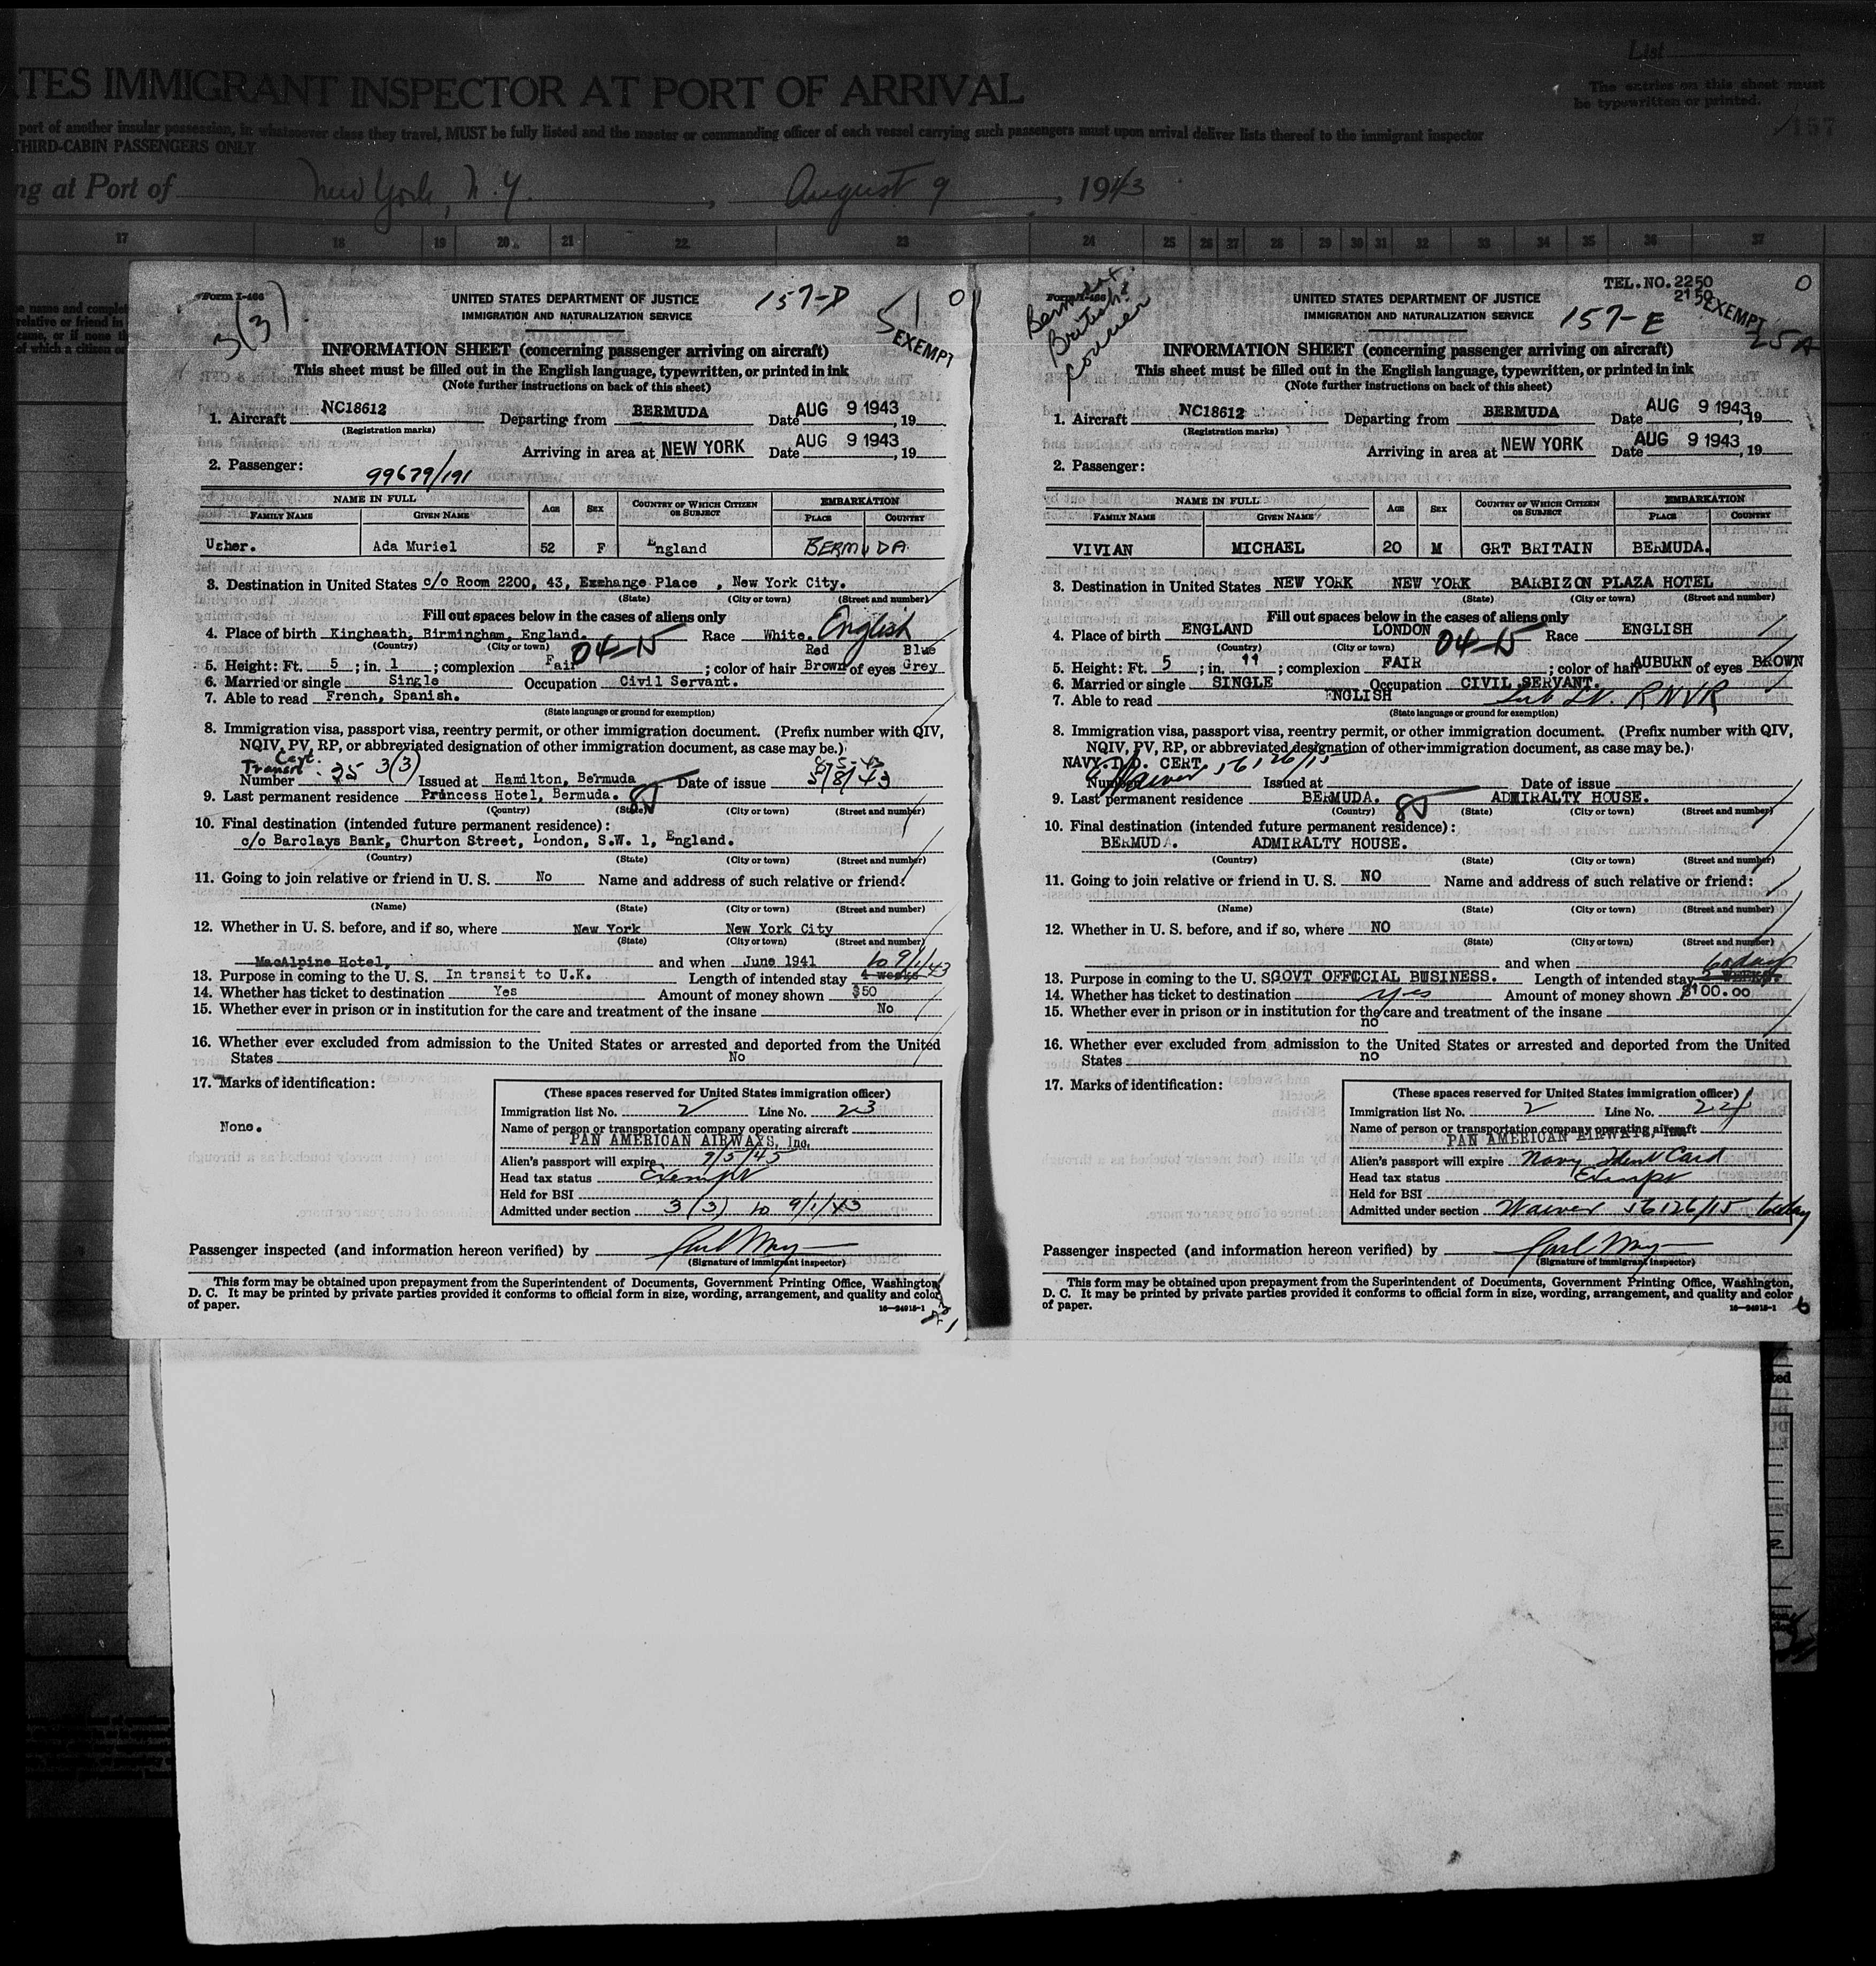 List
TES IMMIGRANT INSPECTOR AT PORT OF ARRIVAL
The entries on this sheet must
be typewritten or printed.
port of another insular possession, in whatsoever class they travel, MUST be fully listed and the master or commanding officer of each vessel carrying such passengers must upon arrival deliver lists thereof to the immigrant inspector
157
THIRD-CABIN PASSENGERS ONLY
ng at Port of New York, N.Y. , August 9 , 1943
17 18 19 20 21 22 23 24 25 26 27 28 29 30 31 32 33 34 35 36 37
Form I-466
3(3)
UNITED STATES DEPARTMENT OF JUSTICE
IMMIGRATION AND NATURALIZATION SERVICE
157-D
0
EXEMPT
INFORMATION SHEET (concerning passenger arriving on aircraft)
This sheet must be filled out in the English language, typewritten, or printed in ink
(Note further instructions on back of this sheet)
1. Aircraft NC18612 Departing from BERMUDA Date AUG 9 1943, 19
(Registration marks)
Arriving in area at NEW YORK Date AUG 9 1943, 19
2. Passenger:
99679/191
NAME IN FULL AGE SEX COUNTRY OF WHICH CITIZEN OR SUBJECT EMBARKATION
FAMILY NAME GIVEN NAME PLACE COUNTRY
Usher. Ada Muriel 52 F England BERMUDA.
3. Destination in United States c/o Room 2200, 43, Exchange Place , New York City.
(State) (City or town) (Street and number)
Fill out spaces below in the cases of aliens only
4. Place of birth Kingheath, Birmingham, England. 04-15 Race White. English
(Country) (City or town)
Red Blue
5. Height: Ft. 5 ; in. 1 ; complexion Fair ; color of hair Brown of eyes Grey
6. Married or single Single Occupation Civil Servant.
7. Able to read French, Spanish.
(State language or ground for exemption)
8. Immigration visa, passport visa, reentry permit, or other immigration document. (Prefix number with QIV,
NQIV, PV, RP, or abbreviated designation of other immigration document, as case may be.)
Cert.
Transit
Number 35 3(3) Issued at Hamilton, Bermuda Date of issue 5/8/43
8-5-43
9. Last permanent residence Princess Hotel, Bermuda. 85
(Country) (State) (City or town) (Street and number)
10. Final destination (intended future permanent residence):
c/o Barclays Bank, Churton Street, London, S.W. 1, England.
(Country) (State) (City or town) (Street and number)
11. Going to join relative or friend in U. S. No Name and address of such relative or friend:
(Name) (State) (City or town) (Street and number)
12. Whether in U. S. before, and if so, where New York New York City
(State) (City or town) (Street and number)
MacAlpine Hotel, and when June 1941
to 9/1/43
13. Purpose in coming to the U. S. In transit to U.K. Length of intended stay 4 weeks
14. Whether has ticket to destination Yes Amount of money shown $50
15. Whether ever in prison or in institution for the care and treatment of the insane No
16. Whether ever excluded from admission to the United States or arrested and deported from the United
States No
17. Marks of identification:
None.
(These spaces reserved for United States immigration officer)
Immigration list No. 2 Line No. 23
Name of person or transportation company operating aircraft
PAN AMERICAN AIRWAYS, Inc.
Alien's passport will expire 9/5/45
Head tax status Exempt
Held for BSI
Admitted under section 3(3) to 9/1/43
Passenger inspected (and information hereon verified) by
(Signature of immigrant inspector)
This form may be obtained upon prepayment from the Superintendent of Documents, Government Printing Office, Washington,
D. C. It may be printed by private parties provided it conforms to official form in size, wording, arrangement, and quality and color
of paper. 16-24915-1
Form I-466
British
TEL.NO.2250
2150
0
UNITED STATES DEPARTMENT OF JUSTICE
IMMIGRATION AND NATURALIZATION SERVICE
157-E
EXEMPT
25A
INFORMATION SHEET (concerning passenger arriving on aircraft)
This sheet must be filled out in the English language, typewritten, or printed in ink
(Note further instructions on back of this sheet)
1. Aircraft NC18612 Departing from BERMUDA Date AUG 9 1943, 19
(Registration marks)
Arriving in area at NEW YORK Date AUG 9 1943, 19
2. Passenger:
NAME IN FULL AGE SEX COUNTRY OF WHICH CITIZEN OR SUBJECT EMBARKATION
FAMILY NAME GIVEN NAME PLACE COUNTRY
VIVIAN MICHAEL 20 M GRT BRITAIN BERMUDA.
3. Destination in United States NEW YORK NEW YORK BARBIZON PLAZA HOTEL
(State) (City or town) (Street and number)
Fill out spaces below in the cases of aliens only
4. Place of birth ENGLAND LONDON 04-15 Race ENGLISH
(Country) (City or town)
5. Height: Ft. 5 ; in. 11 ; complexion FAIR ; color of hair AUBURN of eyes BROWN
6. Married or single SINGLE Occupation CIVIL SERVANT.
7. Able to read ENGLISH Sub Lt. RNVR
(State language or ground for exemption)
8. Immigration visa, passport visa, reentry permit, or other immigration document. (Prefix number with QIV,
NQIV, PV, RP, or abbreviated designation of other immigration document, as case may be.)
NAVY I.D. CERT.
Number Waiver 56126/15 Issued at Date of issue
9. Last permanent residence BERMUDA. 85 ADMIRALTY HOUSE.
(Country) (State) (City or town) (Street and number)
10. Final destination (intended future permanent residence):
BERMUDA. ADMIRALTY HOUSE.
(Country) (State) (City or town) (Street and number)
11. Going to join relative or friend in U. S. NO Name and address of such relative or friend:
(Name) (State) (City or town) (Street and number)
12. Whether in U. S. before, and if so, where NO
(State) (City or town) (Street and number)
and when
13. Purpose in coming to the U. S. GOVT OFFICIAL BUSINESS. Length of intended stay
14. Whether has ticket to destination yes Amount of money shown $100.00
15. Whether ever in prison or in institution for the care and treatment of the insane
no
16. Whether ever excluded from admission to the United States or arrested and deported from the United
States no
17. Marks of identification:
(These spaces reserved for United States immigration officer)
Immigration list No. 2 Line No. 24
Name of person or transportation company operating aircraft
PAN AMERICAN AIRWAYS, Inc.
Alien's passport will expire Navy Ident Card
Head tax status Exempt
Held for BSI
Admitted under section Waiver 56126/15
Passenger inspected (and information hereon verified) by
(Signature of immigrant inspector)
This form may be obtained upon prepayment from the Superintendent of Documents, Government Printing Office, Washington,
D. C. It may be printed by private parties provided it conforms to official form in size, wording, arrangement, and quality and color
of paper. 16-24915-1
6